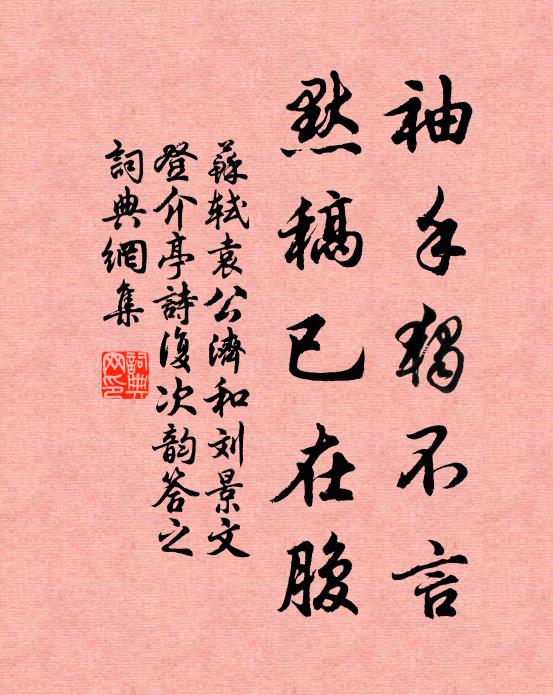 袖手獨不言
默稿已在腹
蘇軾袁公濟和刘景文
登介亭詩復次韵答之
詞典網集
詞典網印